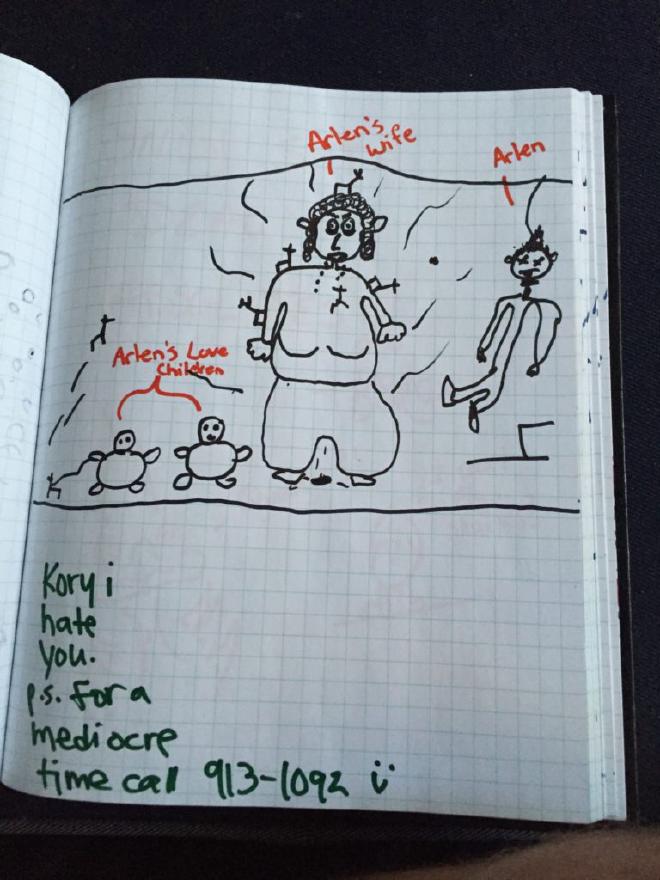 Arlen's
Wife
Arlen
Arlen's Love
Children
Kory i
hate
you.
p.s. for a
mediocre
time call 913-1092 ü